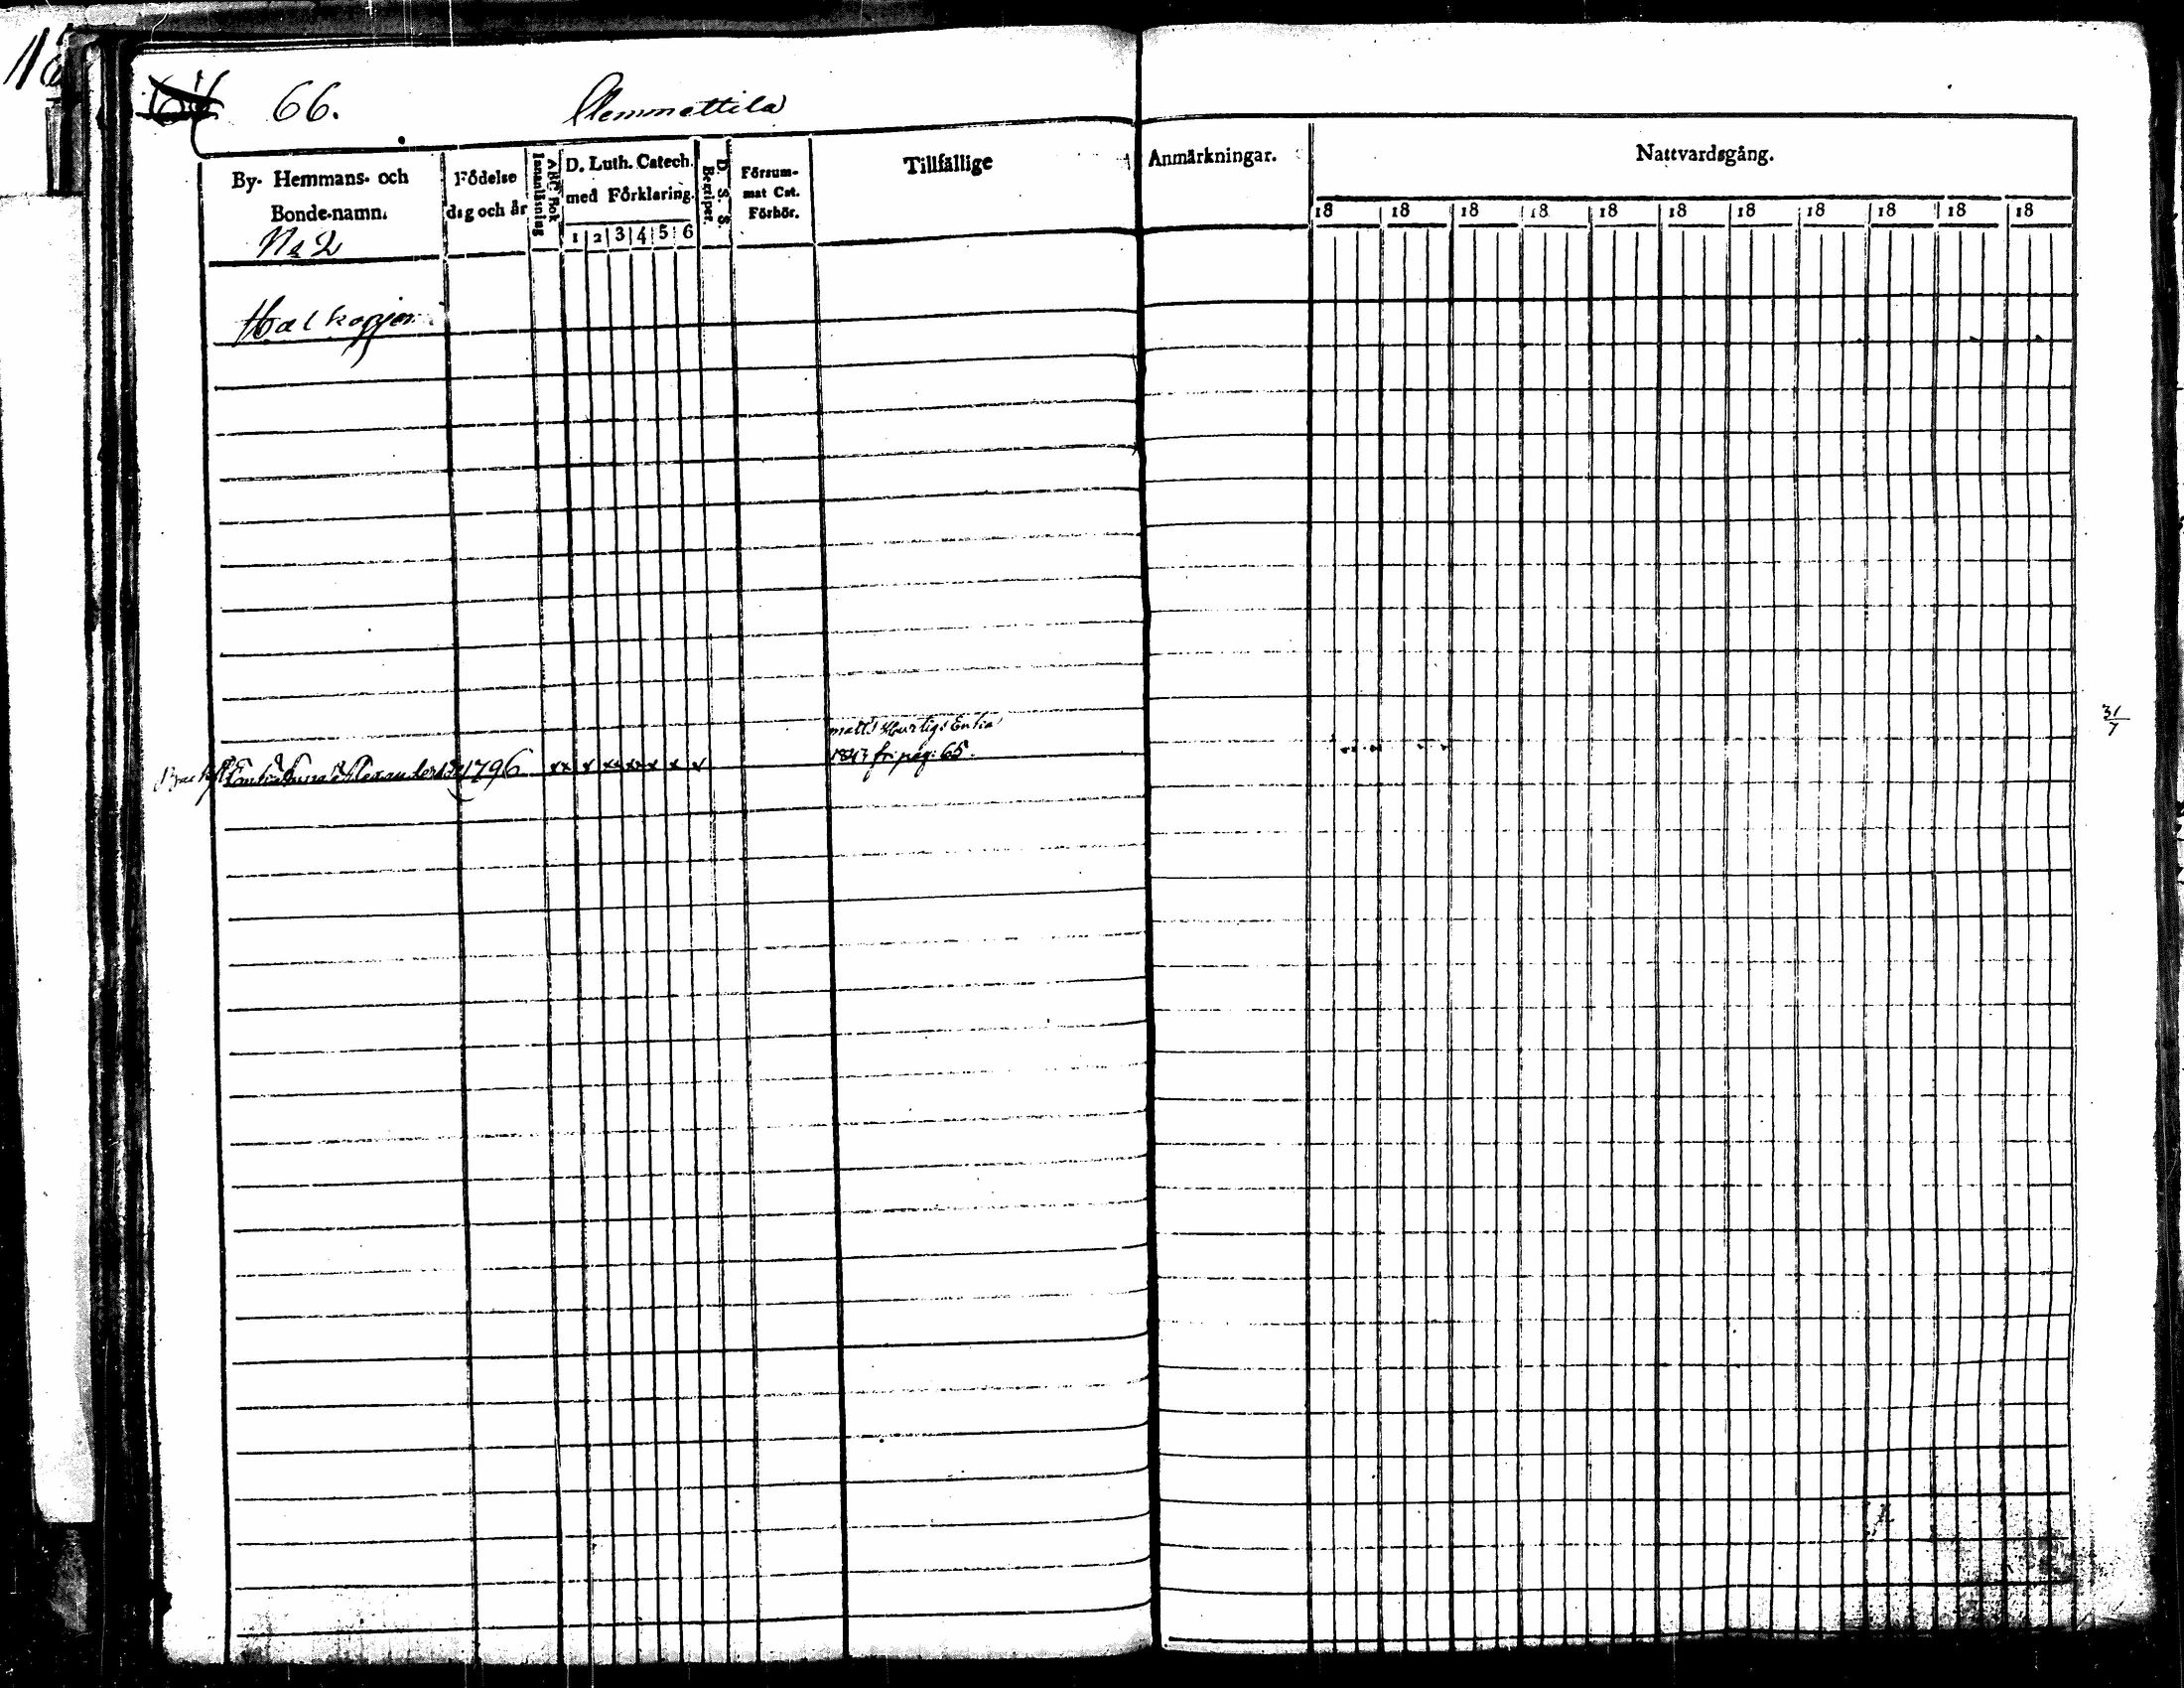 66.
Clemmettila
By- Hemmans- och
Bonde-namn.
Födelse
dag och år
ABC Bok
Innanläsning
D. Luth. Catech.
med Förklaring.
1 2 3 4 5 6
D. S. S.
Begriper.
Försum-
mat Cat.
Förhör.
Tillfällige
Anmärkningar.
Nattvardsgång.
18 18 18 18 18 18 18 18 18 18 18
No 2
matts Hurtigs Enka
Enka Anna Alexandersd 1796 xx x xxxxx x x
1847 fr. pag: 65.
31/7